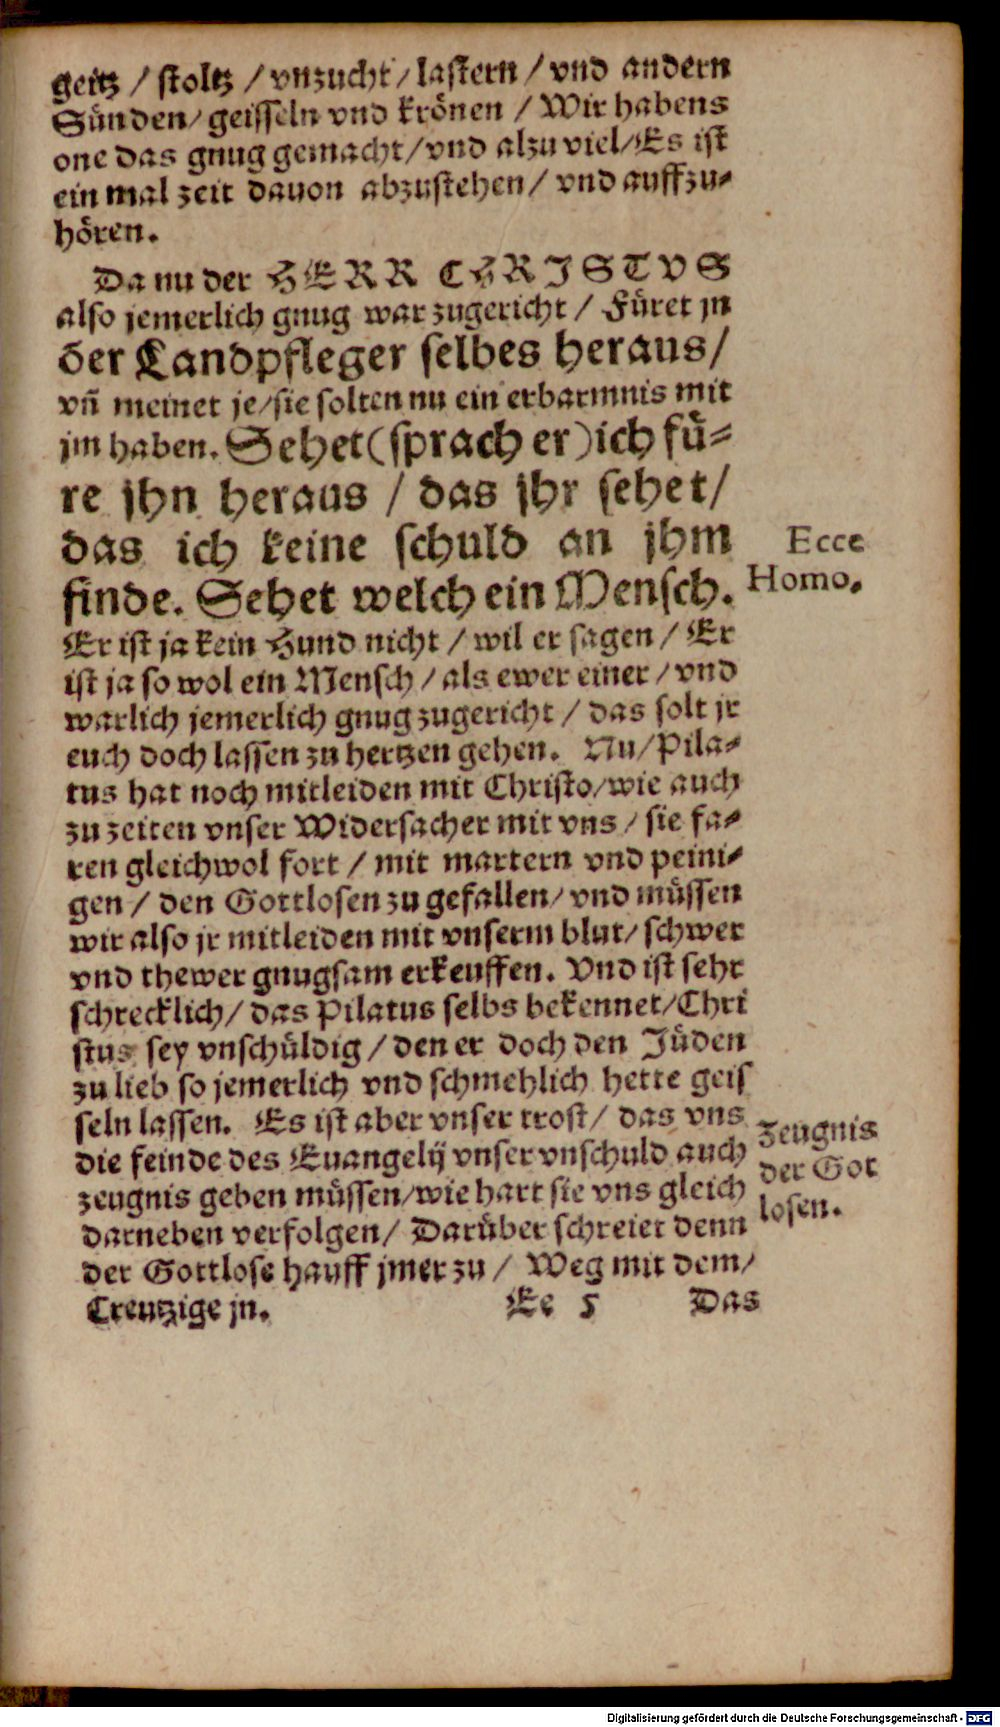 geitz / stoltz / vnzucht / lastern / vnd andern
Sünden / geisseln vnd krönen / Wir habens
one das gnug gemacht / vnd alzu viel / Es ist
ein mal zeit dauon abzustehen / vnd auffzu-
hören.
Da nu der HERR CHRISTVS
also jemerlich gnug war zugericht / Füret jn
der Landpfleger selbes heraus /
vñ meinet je / sie solten nu ein erbarmnis mit
jm haben. Sehet (sprach er) ich fü-
re jhn heraus / das jhr sehet /
das ich keine schuld an jhm
finde. Sehet welch ein Mensch.
Ecce
Homo.
Er ist ja kein Hund nicht / wil er sagen / Er
ist ja so wol ein Mensch / als ewer einer / vnd
warlich jemerlich gnug zugericht / das solt jr
euch doch lassen zu hertzen gehen. Nu / Pila-
tus hat noch mitleiden mit Christo / wie auch
zu zeiten vnser Widersacher mit vns / sie fa-
ren gleichwol fort / mit martern vnd peini-
gen / den Gottlosen zu gefallen / vnd müssen
wir also jr mitleiden mit vnserm blut / schwer
vnd thewer gnugsam erkeuffen. Vnd ist sehr
schrecklich / das Pilatus selbs bekennet / Chri
stus sey vnschüldig / den er doch den Jüden
zu lieb so jemerlich vnd schmehlich hette geis
seln lassen. Es ist aber vnser trost / das vns
die feinde des Euangelij vnser vnschuld auch
zeugnis geben müssen / wie hart sie vns gleich
darneben verfolgen / Darüber schreiet denn
der Gottlose hauff jmer zu / Weg mit dem /
Creutzige jn.
Zeugnis
der Got
losen.
Ee 5 Das
Digitalisierung gefördert durch die Deutsche Forschungsgemeinschaft - DFG